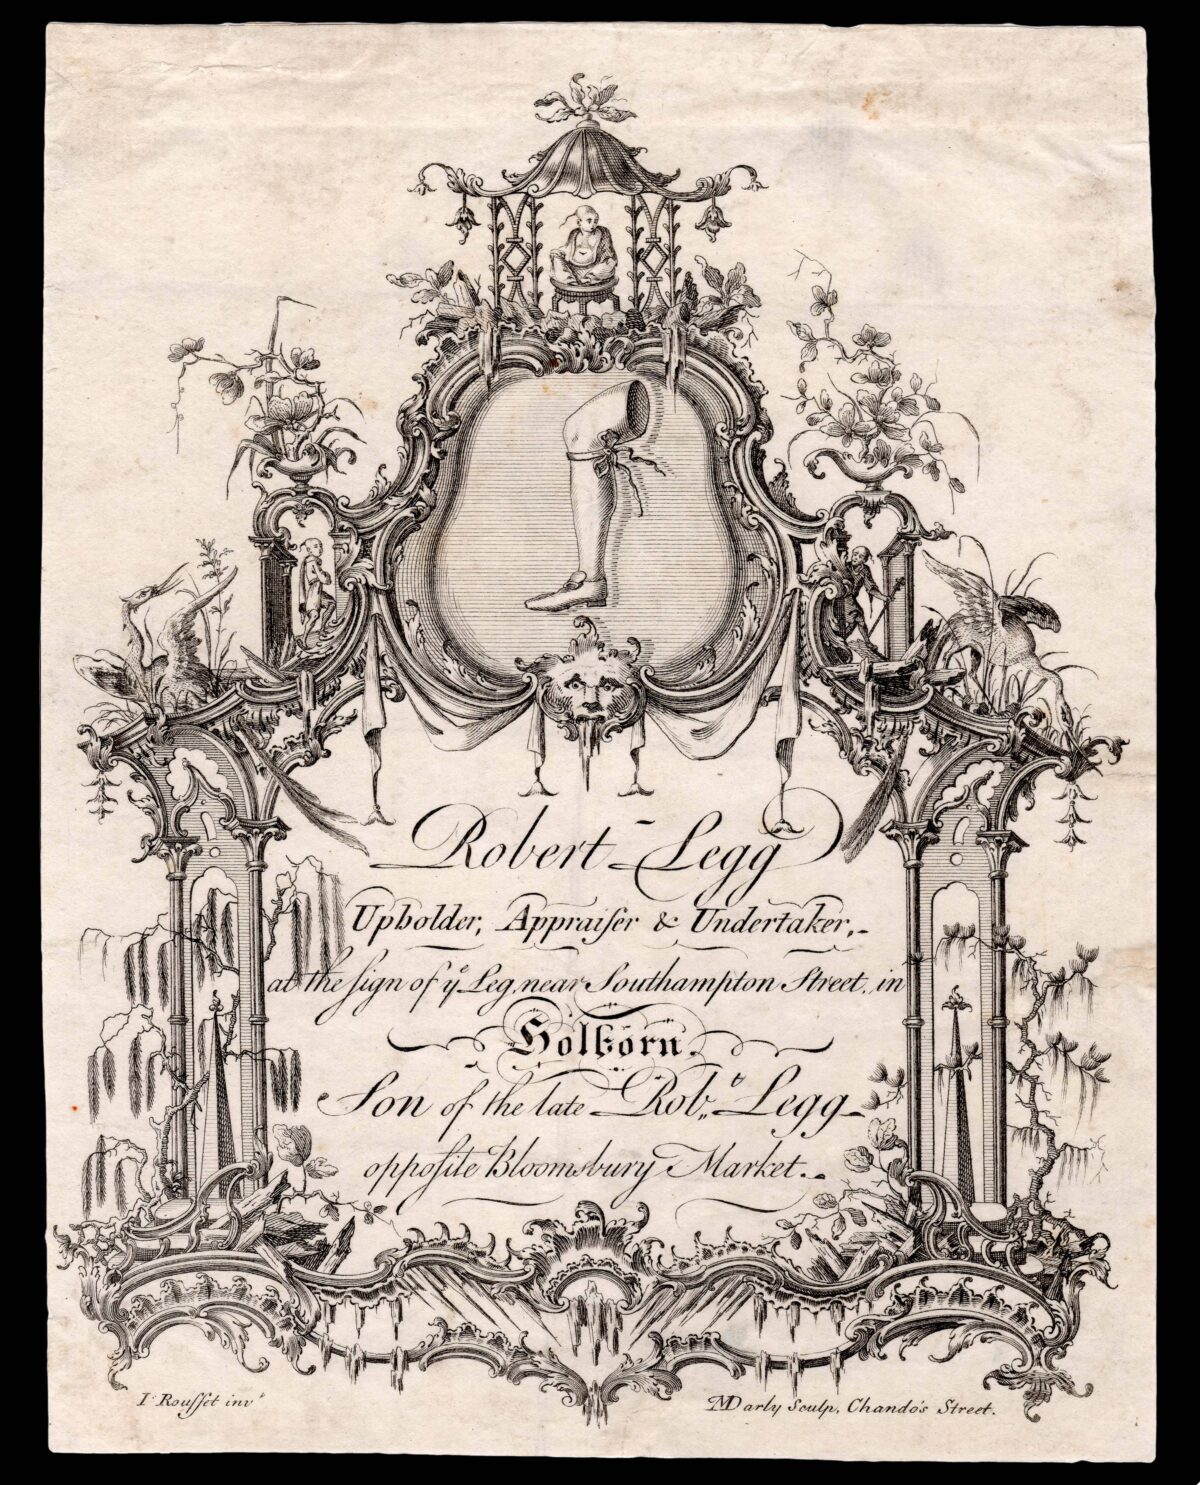 Robert Legg
Upholder, Appraiſer & Undertaker,
at the ſign of yᵉ Leg, near Southampton Street, in
Holborn.
Son of the late Robᵗ. Legg
oppoſite Bloomsbury Market.
I. Rouſſet invᵗ
MDarly Sculp, Chando's Street.